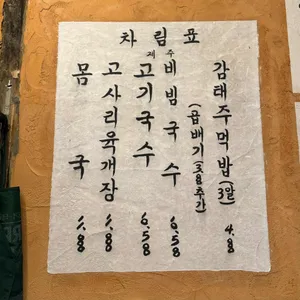 차림표
제주
몸국 1.8
고사리육개장 1.8
고기국수 6.58
비빔국수 6.58
(곱배기 추가)
감태주먹밥(3알) 4.8